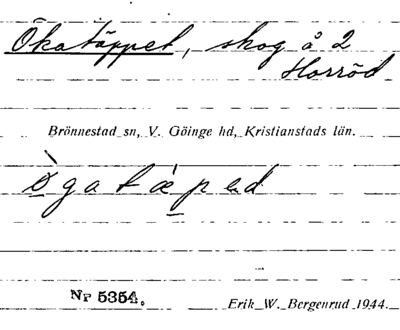 Ökatäppet, skog å 2
Horröd
Brönnestad sn, V. Göinge hd, Kristianstads län.
ö̀gatæped
Nr 5354.
Erik W. Bergenrud 1944.